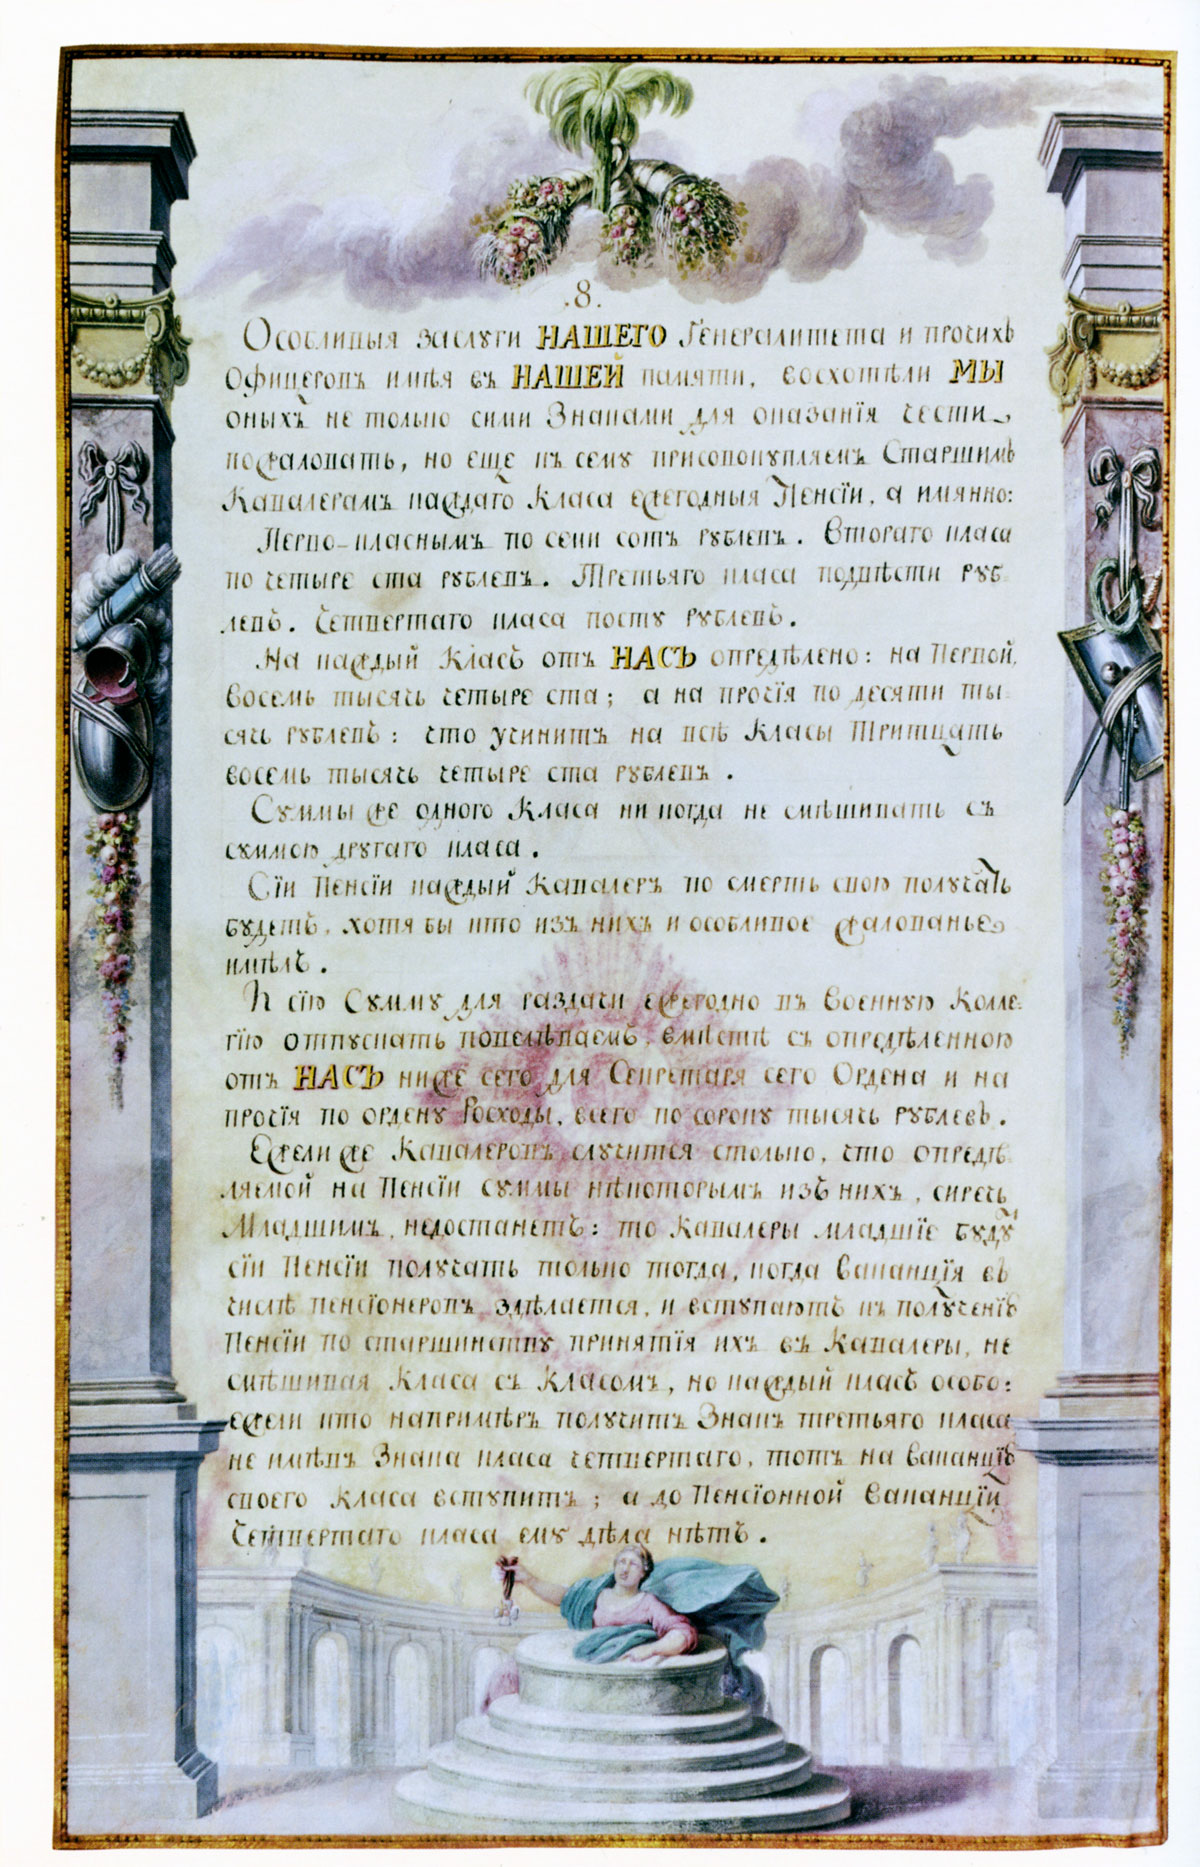 .8.
Особливыя заслуги НАШЕГО Генералитета и прочихъ
Офицеровъ имѣя въ НАШЕЙ памяти, восхотѣли МЫ
оныхъ не только сими Знаками для оказанія чести
пожаловать, но еще къ сему присовокупляемъ Старшимъ
Кавалерамъ каждаго Класа ежегодныя Пенсіи, а имянно:
Перво-класнымъ по семи сотъ рублевъ. Втораго класа
по четыре ста рублевъ. Третьяго класа подвѣсти руб
левъ. Четвертаго класа посту рублевъ.
На каждый Класъ отъ НАСЪ опредѣлено: на Первой,
восемь тысячь четыре ста; а на прочія по десяти ты
сячь рублевъ: что учинитъ на всѣ Класы Тритцать
восемь тысячь четыре ста рублевъ.
Суммы же одного Класа ни когда не смѣшивать съ
суммою другаго класа.
Сіи Пенсіи каждый Кавалеръ по смерть свою получать
будетъ, хотя бы кто изъ нихъ и особливое жалованье
имѣлъ.
И сію Сумму для раздачи ежегодно въ Военную Колле-
гію отпускать повелѣваемъ, вмѣстѣ съ опредѣленною
отъ НАСЪ ниже сего для Секретаря сего Ордена и на
прочія по ордену Росходы, всего по сороку тысячь рублевъ.
Ежели же Кавалеровъ случится столько, что опредѣ
ляемой на Пенсіи суммы нѣкоторымъ изъ нихъ, сирѣчь
Младшимъ, недостанетъ: то Кавалеры младшіе будутъ
сіи Пенсіи получать только тогда, когда Ваканція въ
числѣ пенсіонеровъ здѣлается, и вступаютъ къ полученію
Пенсіи по старшинству принятія ихъ въ Кавалеры, не
смѣшивая Класа съ Класомъ, но каждый класъ особо:
ежели кто напримѣръ получитъ Знакъ третьяго класа
не имѣвъ Знака класа четвертаго, тотъ на ваканцію
своего Класа вступитъ; а до Пенсіонной Ваканціи
Четвертаго класа ему дѣла нѣтъ.